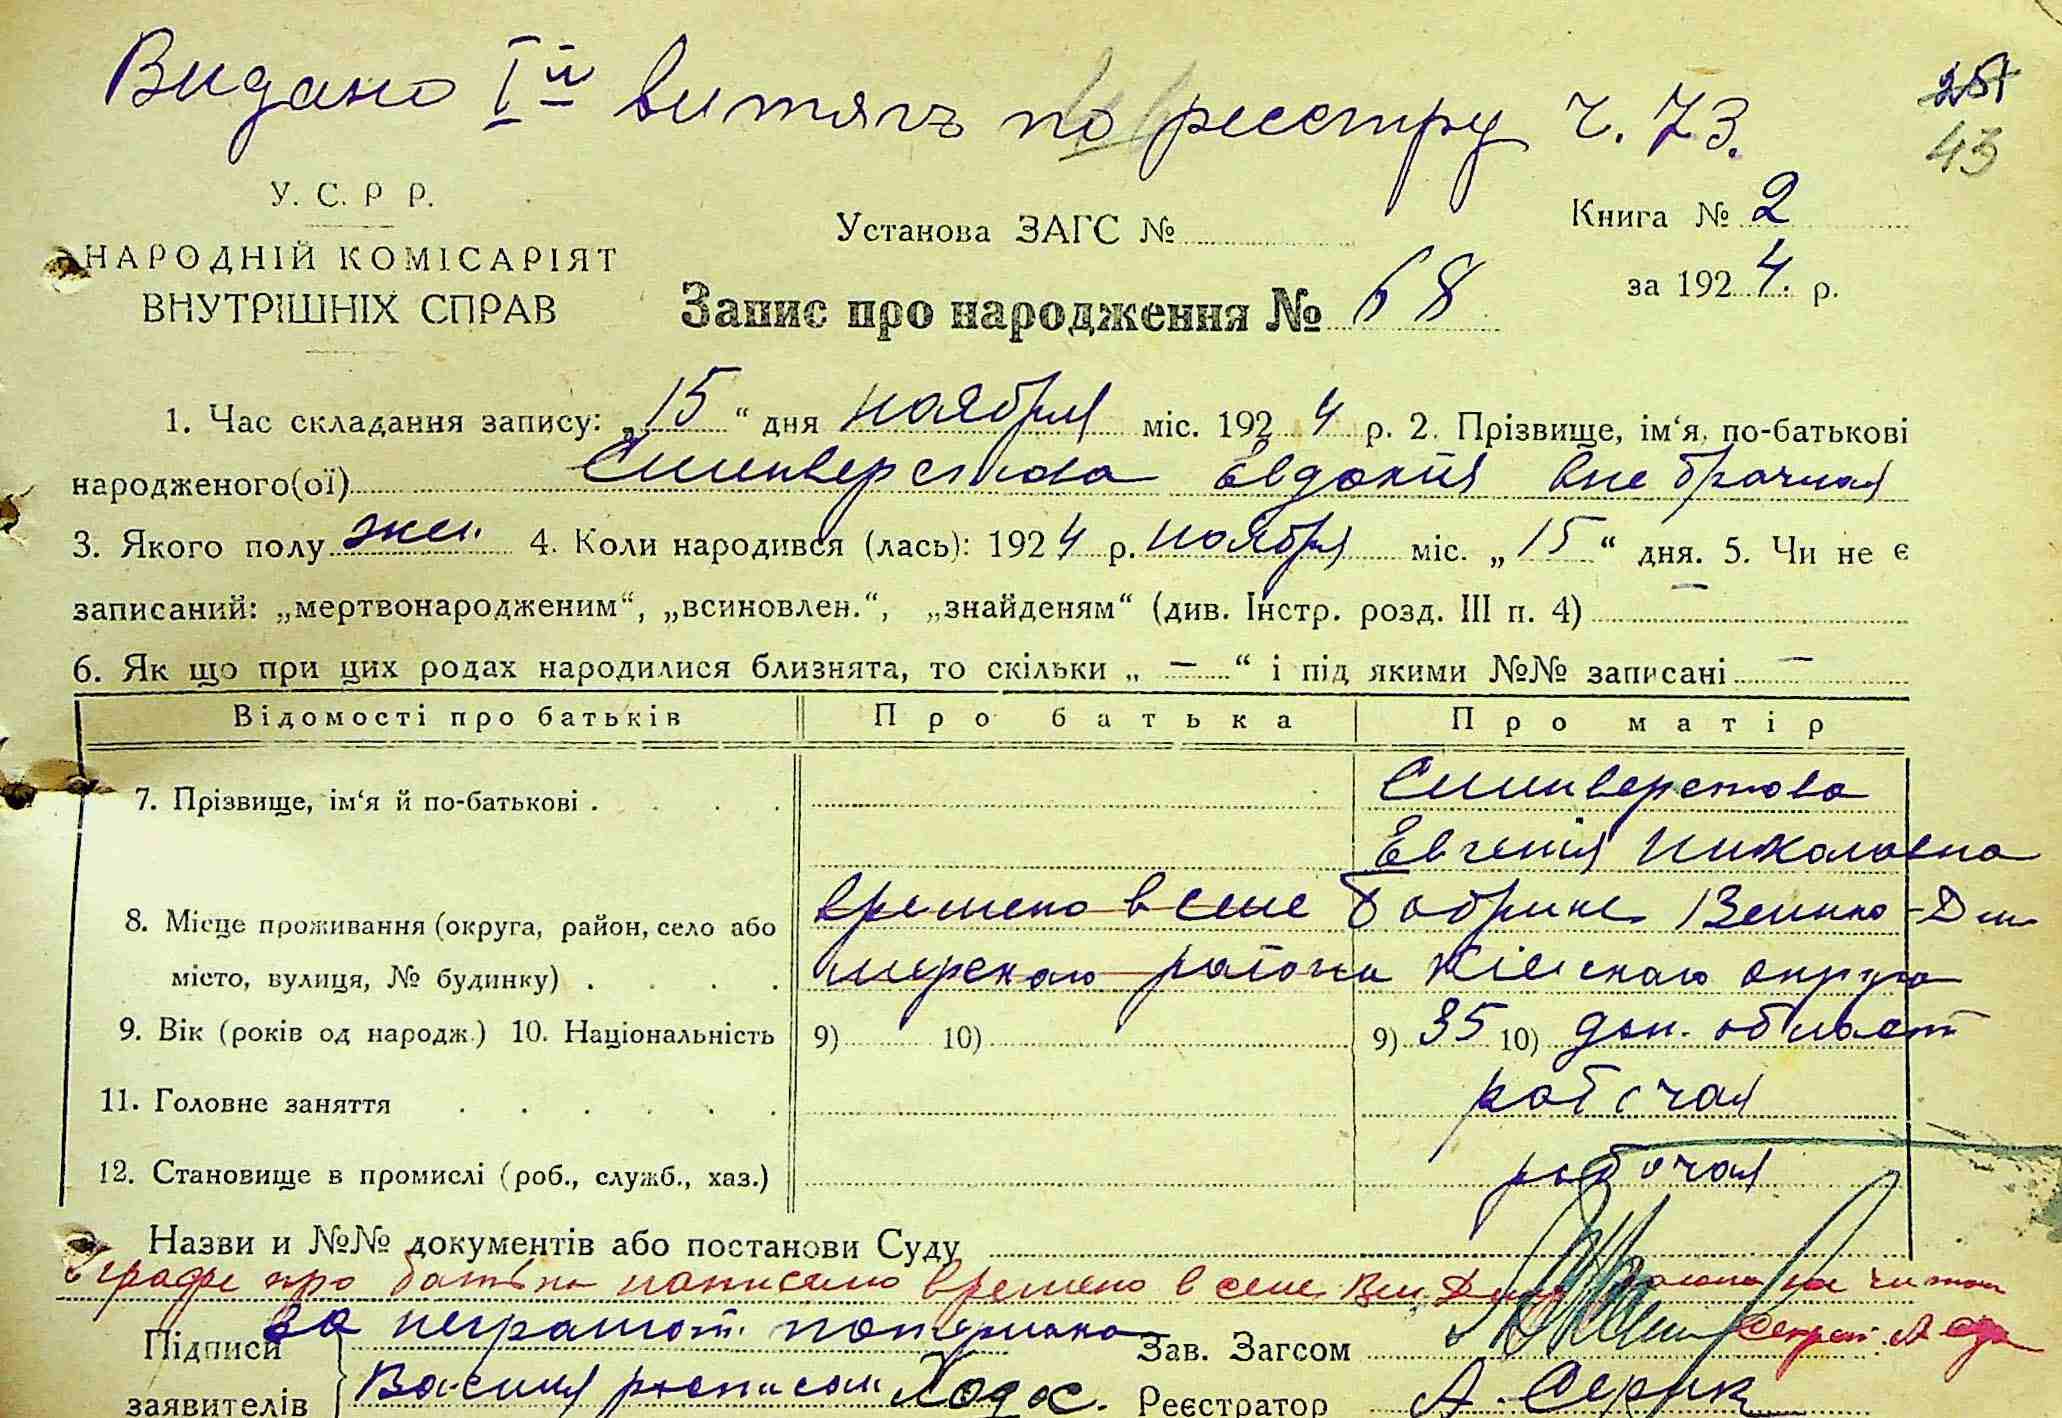 Видано Iй витягъ по реєстру ч. 73.
251
43
У. С. Р. Р.
НАРОДНІЙ КОМІСАРІЯТ
ВНУТРІШНІХ СПРАВ
Установа ЗАГС №
Книга № 2
за 1924. р.
Запис про народження № 68
1. Час складання запису: „15“ дня ноября міс. 1924 р. 2. Прізвище, ім‘я, по-батькові
народженого(ої) Силиверстова Евдокия вне брачная
3. Якого полу жен. 4. Коли народився (лась): 1924 р. ноября міс. „15“ дня. 5. Чи не є
записаний: „мертвонародженим“, „всиновлен.“, „знайденям“ (див. Інстр. розд. III п. 4) —
6. Як що при цих родах народилися близнята, то скільки „ — “ і під якими №№ записані —
Відомості про батьків Про батька Про матір
7. Прізвище, ім‘я й по-батькові . . . . Силиверстова
Евгения Николаевна
8. Місце проживання (округа, район, село або времено в селе Бобрике Велико-Ди
місто, вулиця, № будинку) . . . . мерскаго района Кіевскаго округа
9. Вік (років од народж.) 10. Національність 9) 10) 9) 35 10) дон. област
11. Головне заняття . . . . . рабочая
12. Становище в промислі (роб., служб., хаз.) рабочая
Назви и №№ документів або постанови Суду
В графе про батька написано времено в селе Вел. Дим не читат
Підписи за неграмот. Зав. Загсом Секрет. А Сер
заявителів Василия росписался Ходос. Реєстратор А. Серик